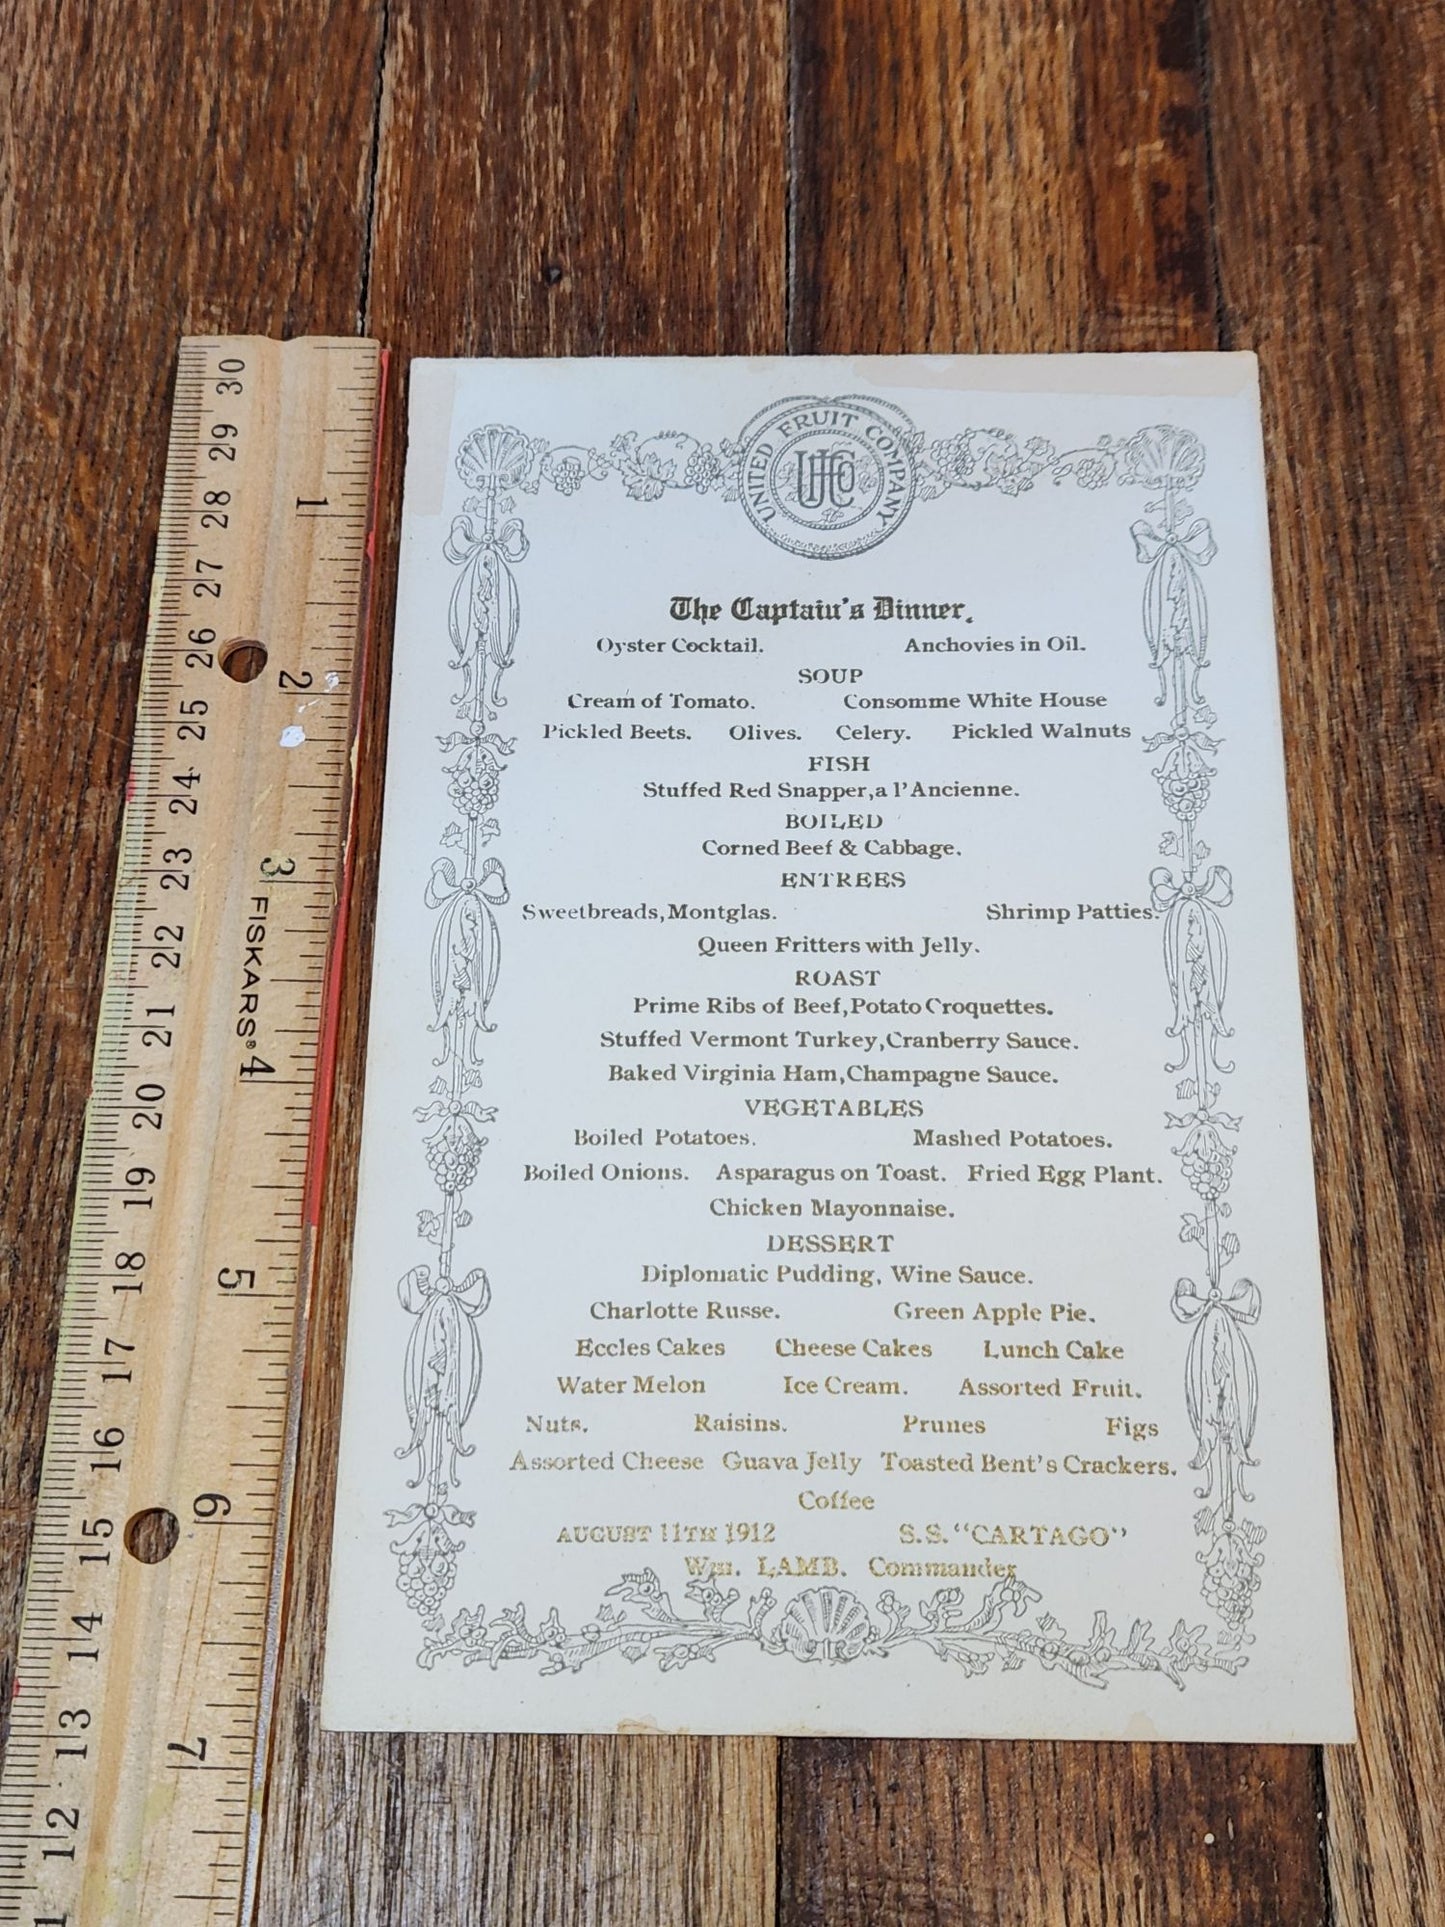 UNITED FRUIT COMPANY
UFCo
The Captaiu's Dinner.
Oyster Cocktail. Anchovies in Oil.
SOUP
Cream of Tomato. Consomme White House
Pickled Beets. Olives. Celery. Pickled Walnuts
FISH
Stuffed Red Snapper,a l'Ancienne.
BOILED
Corned Beef & Cabbage.
ENTREES
Sweetbreads,Montglas. Shrimp Patties.
Queen Fritters with Jelly.
ROAST
Prime Ribs of Beef,Potato Croquettes.
Stuffed Vermont Turkey,Cranberry Sauce.
Baked Virginia Ham,Champagne Sauce.
VEGETABLES
Boiled Potatoes. Mashed Potatoes.
Boiled Onions. Asparagus on Toast. Fried Egg Plant.
Chicken Mayonnaise.
DESSERT
Diplomatic Pudding, Wine Sauce.
Charlotte Russe. Green Apple Pie.
Eccles Cakes Cheese Cakes Lunch Cake
Water Melon Ice Cream. Assorted Fruit.
Nuts. Raisins. Prunes Figs
Assorted Cheese Guava Jelly Toasted Bent's Crackers.
Coffee
AUGUST 11TH 1912 S.S. "CARTAGO"
Wm. LAMB. Commander
30 29 28 27 26 25 24 23 22 21 20 19 18 17 16 15 14 13 12
1 2 3 4 5 6 7
FISKARS®